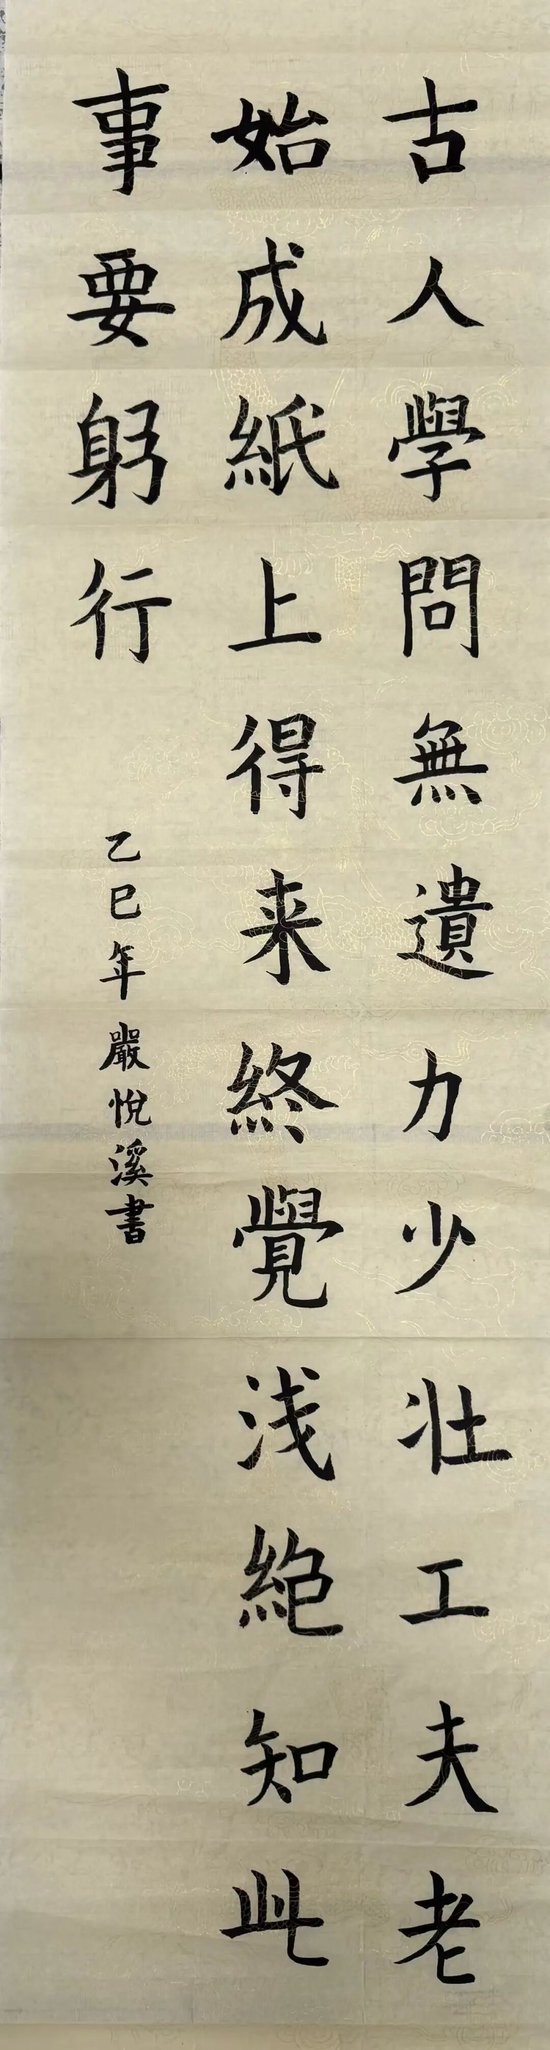 古人學問無遺力少壯工夫老
始成紙上得来終覺浅絕知此
事要躬行
乙巳年嚴悅溪書